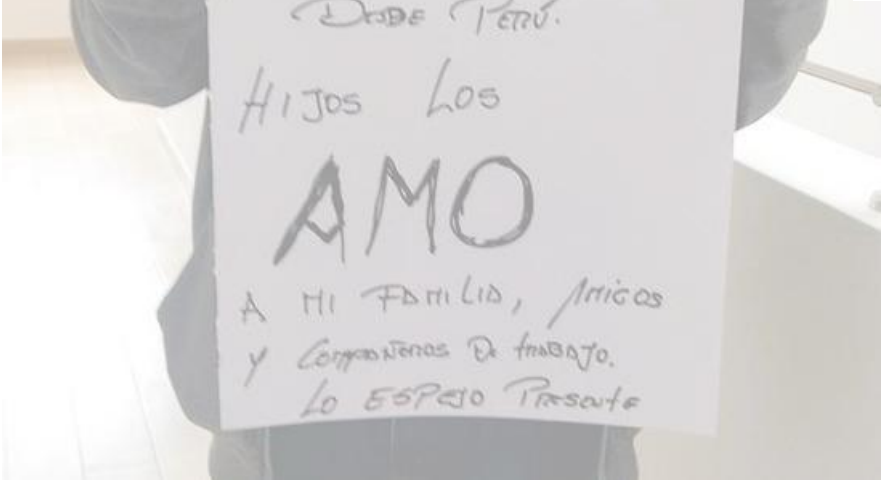 DESDE PERÚ.
HIJOS LOS
AMO
A MI FAMILIA, AMIGOS
Y COMPAÑEROS DE TRABAJO.
LO ESPEJO PRESENTE